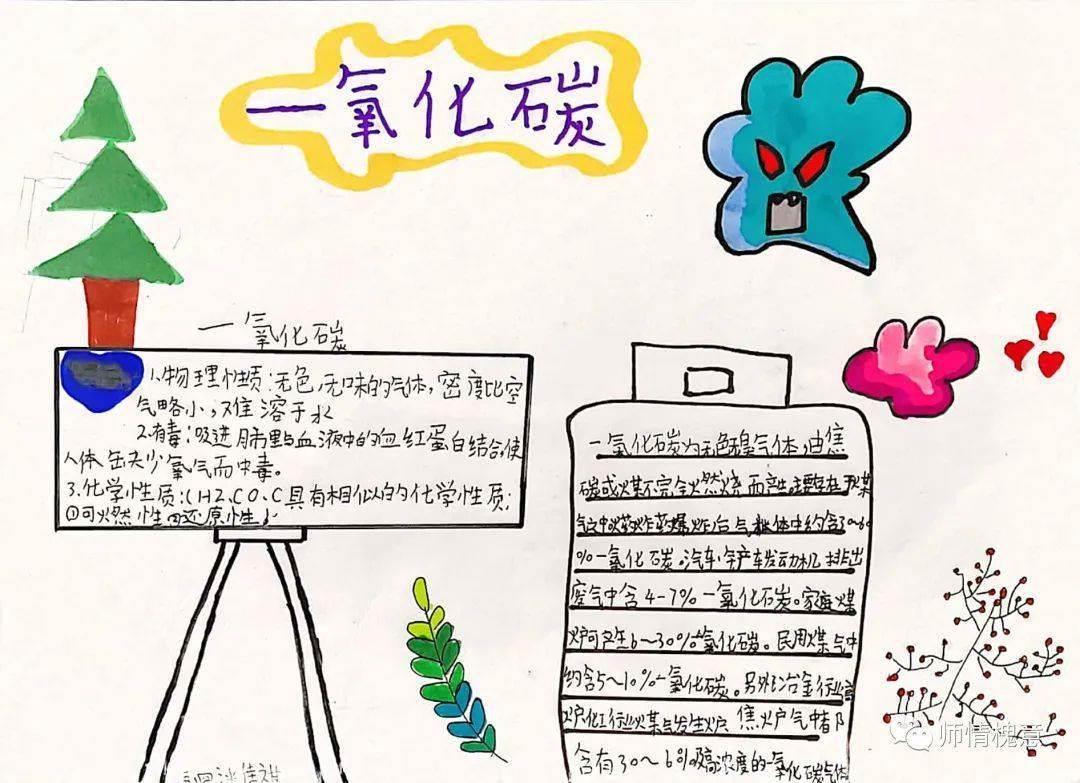 一氧化碳
一氧化碳
1.物理性质:无色,无味的气体,密度比空
气略小,难溶于水
2.有毒:吸进肺与血液中的血红蛋白结合,使
人体缺少氧气而中毒。
3.化学性质:(H2.CO.C具有相似的化学性质:
①可燃性 还原性
一氧化碳为无色无臭气体,由焦
碳或煤不完全燃烧而产生主要存在于煤
气中 爆炸后气体中约含30~60
%一氧化碳。汽车 发动机排出
废气中含4-7%一氧化碳。家庭煤
炉可产生6~30%一氧化碳。民用煤气中
约含5~10%一氧化碳。另外冶金行业高
炉化工行业煤气发生炉、焦炉气中都
含有30~ 高浓度的一氧化碳气体
师情槐意